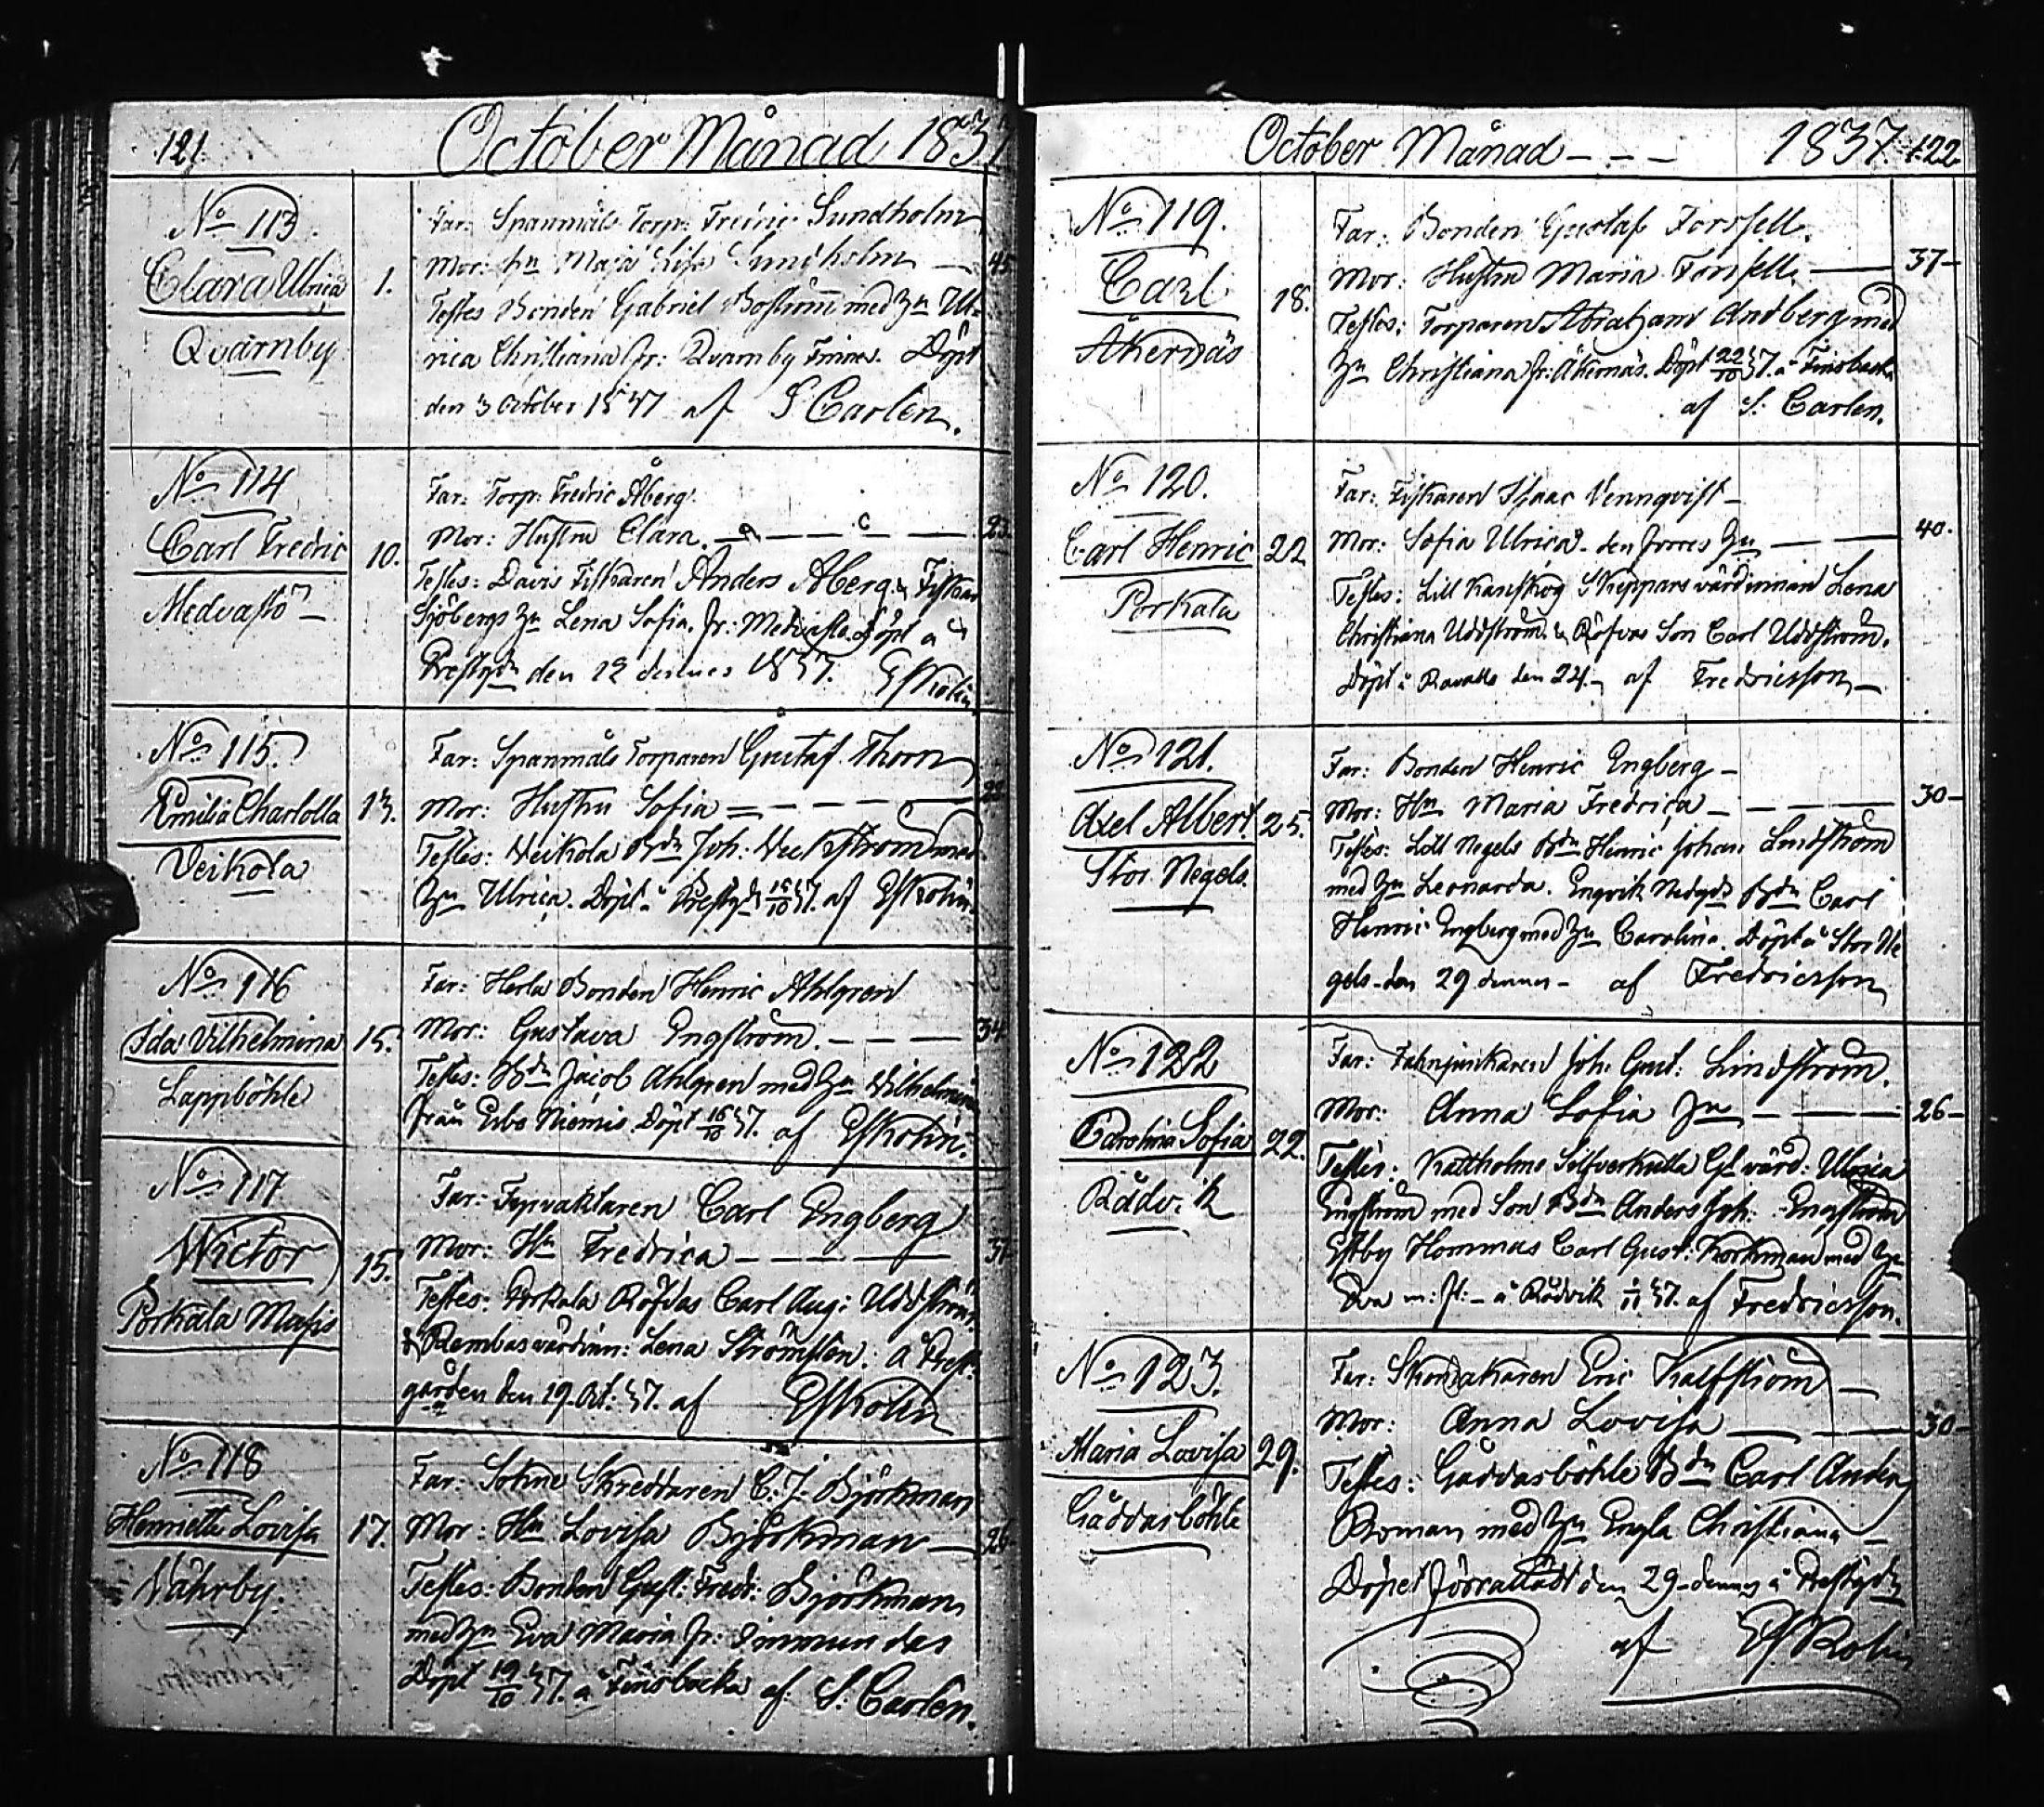 121. October Månad 1837
No 113.
Clara Ulrica
Qvarnby
1.
Far: Spanmåls Torp: Fredric Sundholm
Mor: hu Maja Lisa Sundholm — 45
Testes Bonden Gabriel Boström med hu Ul-
rica Christiana fr: Qvarnby Finnes. Döpt
den 3 October 1837 af S Carlen.
No 114
Carl Fredric
Medvastö
10.
Far: Torp: Fredric Åberg.
Mor: Hustru Clara. — 23
Testes: Davis Fiskaren Anders Åberg & Fiskar
Sjöbergs hu Lena Sofia. fr: Medvastö Döpt å
Prestgdn den 12 dennes 1837. Eskolin
No 115.
Emilia Charlotta
Veikola
13.
Far: Spanmåls Torparen Gustaf Thorn
Mor: Hustru Sofia — 22
Testes: Veikola Bdn Joh: Veckström med
hu Ulrica. Döpt å Prestgd 15/10 37. af Eskolin.
No 116
Ida Vilhelmina
Lappböhle
15.
Far: Herla Bonden Henric Ahlgren
Mor: Gustava Engström. — 34
Testes: Bdn Jacob Ahlgren med hu Vilhelmina
från Erbs Niemis. Döpt 16/10 37. af Eskolin.
No 117
Wictor
Porkala Masis
15.
Far: Fyrvaktaren Carl Engberg
Mor: Hu Fredrica — 37
Testes: Porkala Rofvas Carl Aug: Uddström
& Rembas värdinn: Lena Strömsten: å Prest-
gården den 19. Oct: 37. af Eskolin
No 118
Henrietta Lovisa
Nährby.
17.
Far: Sokne Skreddaren C. J. Björkman
Mor: Hu Lovisa Björkman — 26
Testes: Bonden Gust: Fredr: Björkman
med hu Eva Maria fr:
Döpt 19/10 37. å Finsbacka af S. Carlen.
October Månad — — — 1837. 122
No 119.
Carl
Åkernäs
18.
Far: Bonden Gustaf Forssell.
Mor: Hustru Maria Forssell. — 37
Testes: Torparen Abraham Andberg med
hu Christiana fr: Åkernäs. Döpt 22/10 37. å Finsbacka
af S. Carlen.
No 120.
Carl Henric
Porkala
22
Far: Fiskaren Isaac Vennqvist —
Mor: Sofia Ulrica — den förres hu — 40.
Testes: Lill Kanskog Skeppars värdinnan Lena
Christiana Uddström. & Rofvas Son Carl Uddström.
Döpt å den 22. — af Fredricsson —
No 121.
Axel Albert
Stor Negels
25.
Far: Bonden Henric Engberg —
Mor: Hu Maria Fredrica — 30 —
Testes: Lill Negels Bdn Henric Johan Lindström
med hu Leonarda. Engvik Nedgds Bdn Carl
Henric Engberg med hu Carolina. Döpt å Stor Ne
gels den 29 dennes — af Fredricsson
No 122
Carolina Sofia
Rådvik
22.
Far: Fahnjunkaren Joh: Gust: Lindström.
Mor: Anna Sofia hu — 26 —
Testes: Kattholms Silfverkulla Gl värd: Ulrica
Engström med Son Bdn Anders Joh: Engström
Estby Hommas Carl Gust: Korkman med hu
Eva m: fl: — å Rådvik 1/11 37. af Fredricsson.
No 123.
Maria Lovisa
Gäddasböhle
29.
Far: Skomakaren Eric Kalfström —
Mor: Anna Lovisa — 30 —
Testes: Gäddasböhle Bdn Carl Anders
Boman med hu Engla Christiana —
Döpet förrättadt den 29 dennes å Prestgdn
af Eskolin